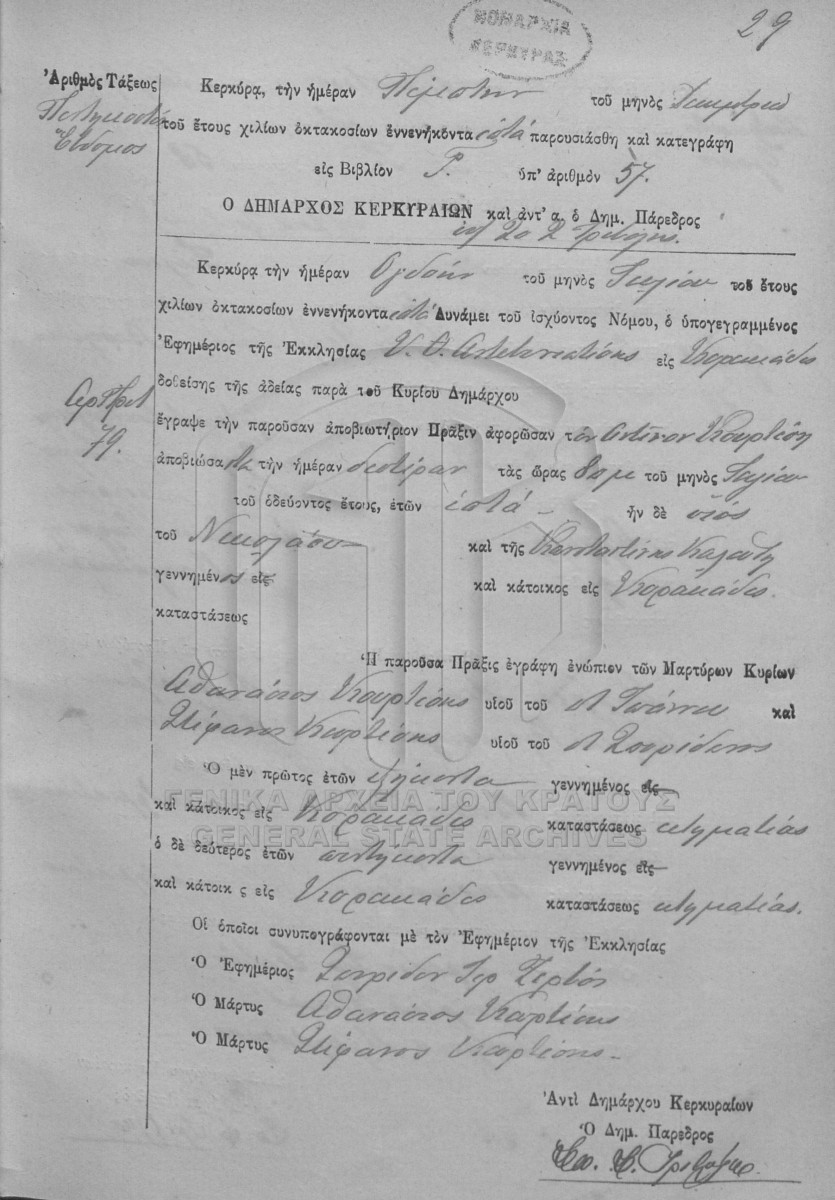 29
ΝΟΜΑΡΧΙΑ
ΚΕΡΚΥΡΑΣ
Ἀριθμὸς Τάξεως
Πεντηκοστὸς
Ἕβδομος
Κερκύρᾳ, τὴν ἡμέραν Πέμπτην τοῦ μηνὸς
τοῦ ἔτους χιλίων ὀκτακοσίων ἐννενήκοντα ἑπτὰ παρουσιάσθη καὶ κατεγράφη
εἰς Βιβλίον ὑπ' ἀριθμὸν 57.
Ο ΔΗΜΑΡΧΟΣ ΚΕΡΚΥΡΑΙΩΝ καὶ ἀντ' α, ὁ Δημ. Πάρεδρος
Κερκύρᾳ τὴν ἡμέραν Ὀγδόην τοῦ μηνὸς Ἰουλίου τοῦ ἔτους
χιλίων ὀκτακοσίων ἐννενήκοντα ἑπτὰ Δυνάμει τοῦ ἰσχύοντος Νόμου, ὁ ὑπογεγραμμένος
Ἐφημέριος τῆς Ἐκκλησίας εἰς Κορακάδες
δοθείσης τῆς ἀδείας παρὰ τοῦ Κυρίου Δημάρχου
79.
ἔγραψε τὴν παροῦσαν ἀποβιωτήριον Πρᾶξιν ἀφορῶσαν τὸν Κουρτέση
ἀποβιώσαντα τὴν ἡμέραν δευτέραν τὰς ὥρας 8 πμ τοῦ μηνὸς Ἰουλίου
τοῦ ὁδεύοντος ἔτους, ἐτῶν ἑπτά - ἦν δὲ υἱὸς
τοῦ Νικολάου καὶ τῆς Κωνσταντίνης
γεννημένος εἰς καὶ κάτοικος εἰς Κορακάδες.
καταστάσεως
Ἡ παροῦσα Πρᾶξις ἐγράφη ἐνώπιον τῶν Μαρτύρων Κυρίων
Ἀθανάσιος Κουρτέσης υἱοῦ τοῦ Ἰωάννου καὶ
Στέφανος Κουρτέσης υἱοῦ τοῦ Σπυρίδωνος
Ὁ μὲν πρῶτος ἐτῶν ἑξήκοντα γεννημένος εἰς
καὶ κάτοικος εἰς Κορακάδες καταστάσεως κτηματίας
ὁ δὲ δεύτερος ἐτῶν πεντήκοντα γεννημένος εἰς
καὶ κάτοικ ς εἰς Κορακάδες καταστάσεως κτηματίας.
Οἱ ὁποῖοι συνυπογράφονται μὲ τὸν Ἐφημέριον τῆς Ἐκκλησίας
Ὁ Ἐφημέριος Σπυρίδων Ἱερ
Ὁ Μάρτυς Ἀθανάσιος Κουρτέσης
Ὁ Μάρτυς Στέφανος Κουρτέσης -
Ἀντὶ Δημάρχου Κερκυραίων
Ὁ Δημ. Παρεδρος
ΓΕΝΙΚΑ ΑΡΧΕΙΑ ΤΟΥ ΚΡΑΤΟΥΣ
GENERAL STATE ARCHIVES